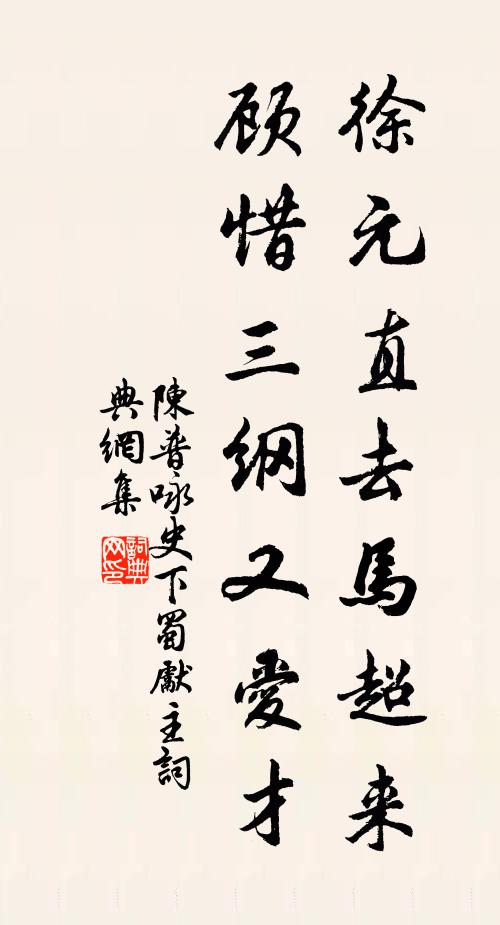 徐元直去馬超来
顾惜三纲又愛才
陳普咏史下蜀獻主詞
典網集
詞典
网印